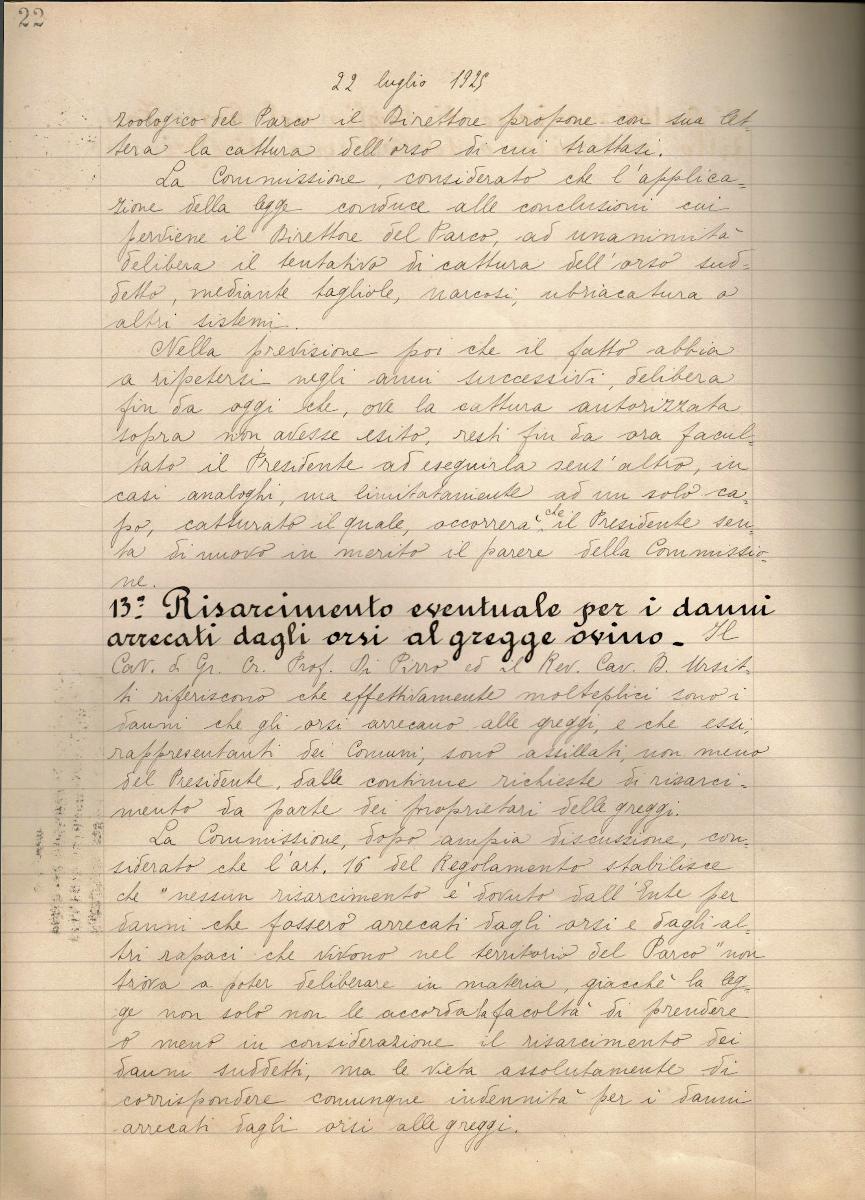 22
22 luglio 1925
zoologico del Parco il Direttore propone con sua let-
tera la cattura dell'orso di cui trattasi.
La Commissione, considerato che l'applica-
zione della legge conduce alle conclusioni cui
perviene il Direttore del Parco, ad unanimità
delibera il tentativo di cattura dell'orso sud-
detto, mediante tagliole, narcosi, ubriacatura o
altri sistemi.
Nella previsione poi che il fatto abbia
a ripetersi negli anni successivi, delibera
fin da oggi che, ove la cattura autorizzata
sopra non avesse esito, resti fin da ora facul-
tato il Presidente ad eseguirla senz'altro, in
casi analoghi, ma limitatamente ad un solo ca-
po, catturato il quale, occorrerà che il Presidente sen-
ta di nuovo in merito il parere della Commissio-
ne.
13º Risarcimento eventuale per i danni
arrecati dagli orsi al gregge ovino - Il
Cav. di Gr. Cr. Prof. Di Pirro ed il Rev. Cav. D. Ursit-
ti riferiscono che effettivamente molteplici sono i
danni che gli orsi arrecano alle greggi, e che essi,
rappresentanti dei Comuni, sono assillati, non meno
del Presidente, dalle continue richieste di risarci-
mento da parte dei proprietari delle greggi.
La Commissione, dopo ampia discussione, con-
siderato che l'art. 16 del Regolamento stabilisce
che "nessun risarcimento è dovuto dall'Ente per
danni che fossero arrecati dagli orsi e dagli al-
tri rapaci che vivono nel territorio del Parco" non
trova a poter deliberare in materia, giacchè la leg-
ge non solo non le accorda la facoltà di prendere
o meno in considerazione il risarcimento dei
danni suddetti, ma le vieta assolutamente di
corrispondere comunque indennità per i danni
arrecati dagli orsi alle greggi.